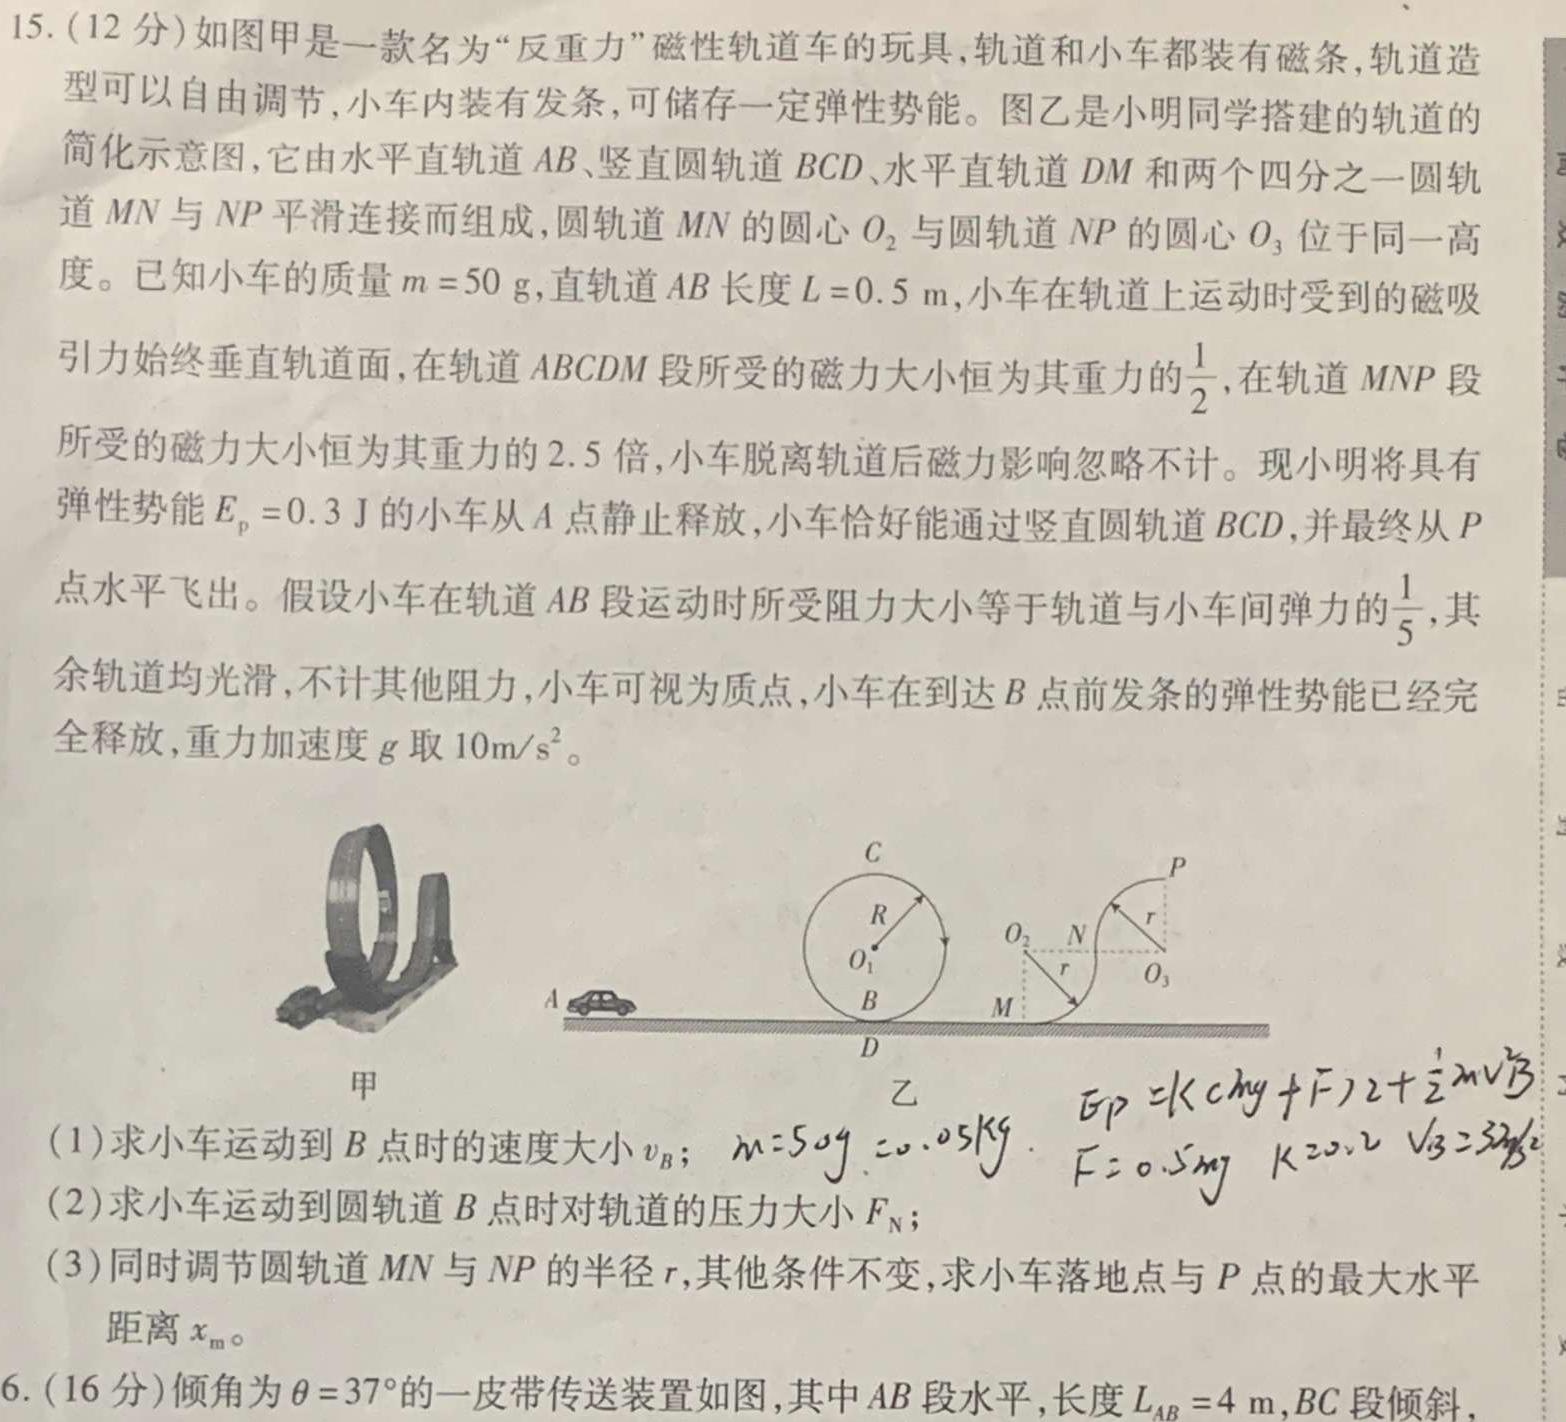 15. (12 分)如图甲是一款名为“反重力”磁性轨道车的玩具,轨道和小车都装有磁条,轨道造
型可以自由调节,小车内装有发条,可储存一定弹性势能。图乙是小明同学搭建的轨道的
简化示意图,它由水平直轨道 AB、竖直圆轨道 BCD、水平直轨道 DM 和两个四分之一圆轨
道 MN 与 NP 平滑连接而组成,圆轨道 MN 的圆心 O₂ 与圆轨道 NP 的圆心 O₃ 位于同一高
度。已知小车的质量 m = 50 g,直轨道 AB 长度 L = 0.5 m,小车在轨道上运动时受到的磁吸
引力始终垂直轨道面,在轨道 ABCDM 段所受的磁力大小恒为其重力的1/2,在轨道 MNP 段
所受的磁力大小恒为其重力的 2.5 倍,小车脱离轨道后磁力影响忽略不计。现小明将具有
弹性势能 Eₚ = 0.3 J 的小车从 A 点静止释放,小车恰好能通过竖直圆轨道 BCD,并最终从 P
点水平飞出。假设小车在轨道 AB 段运动时所受阻力大小等于轨道与小车间弹力的1/5,其
余轨道均光滑,不计其他阻力,小车可视为质点,小车在到达 B 点前发条的弹性势能已经完
全释放,重力加速度 g 取 10m/s²。
C
P
R
r
O₁
O₂
N
r
O₃
A
B
M
D
甲
乙
Ep = K(mg+F)2+1/2mv²B
(1)求小车运动到 B 点时的速度大小 v_B;
m=50g=0.05kg.
F=0.5mg K=0.2
(2)求小车运动到圆轨道 B 点时对轨道的压力大小 F_N;
(3)同时调节圆轨道 MN 与 NP 的半径 r,其他条件不变,求小车落地点与 P 点的最大水平
距离 xₘ。
6. (16 分)倾角为 θ = 37°的一皮带传送装置如图,其中 AB 段水平,长度 L_AB = 4 m,BC 段倾斜,